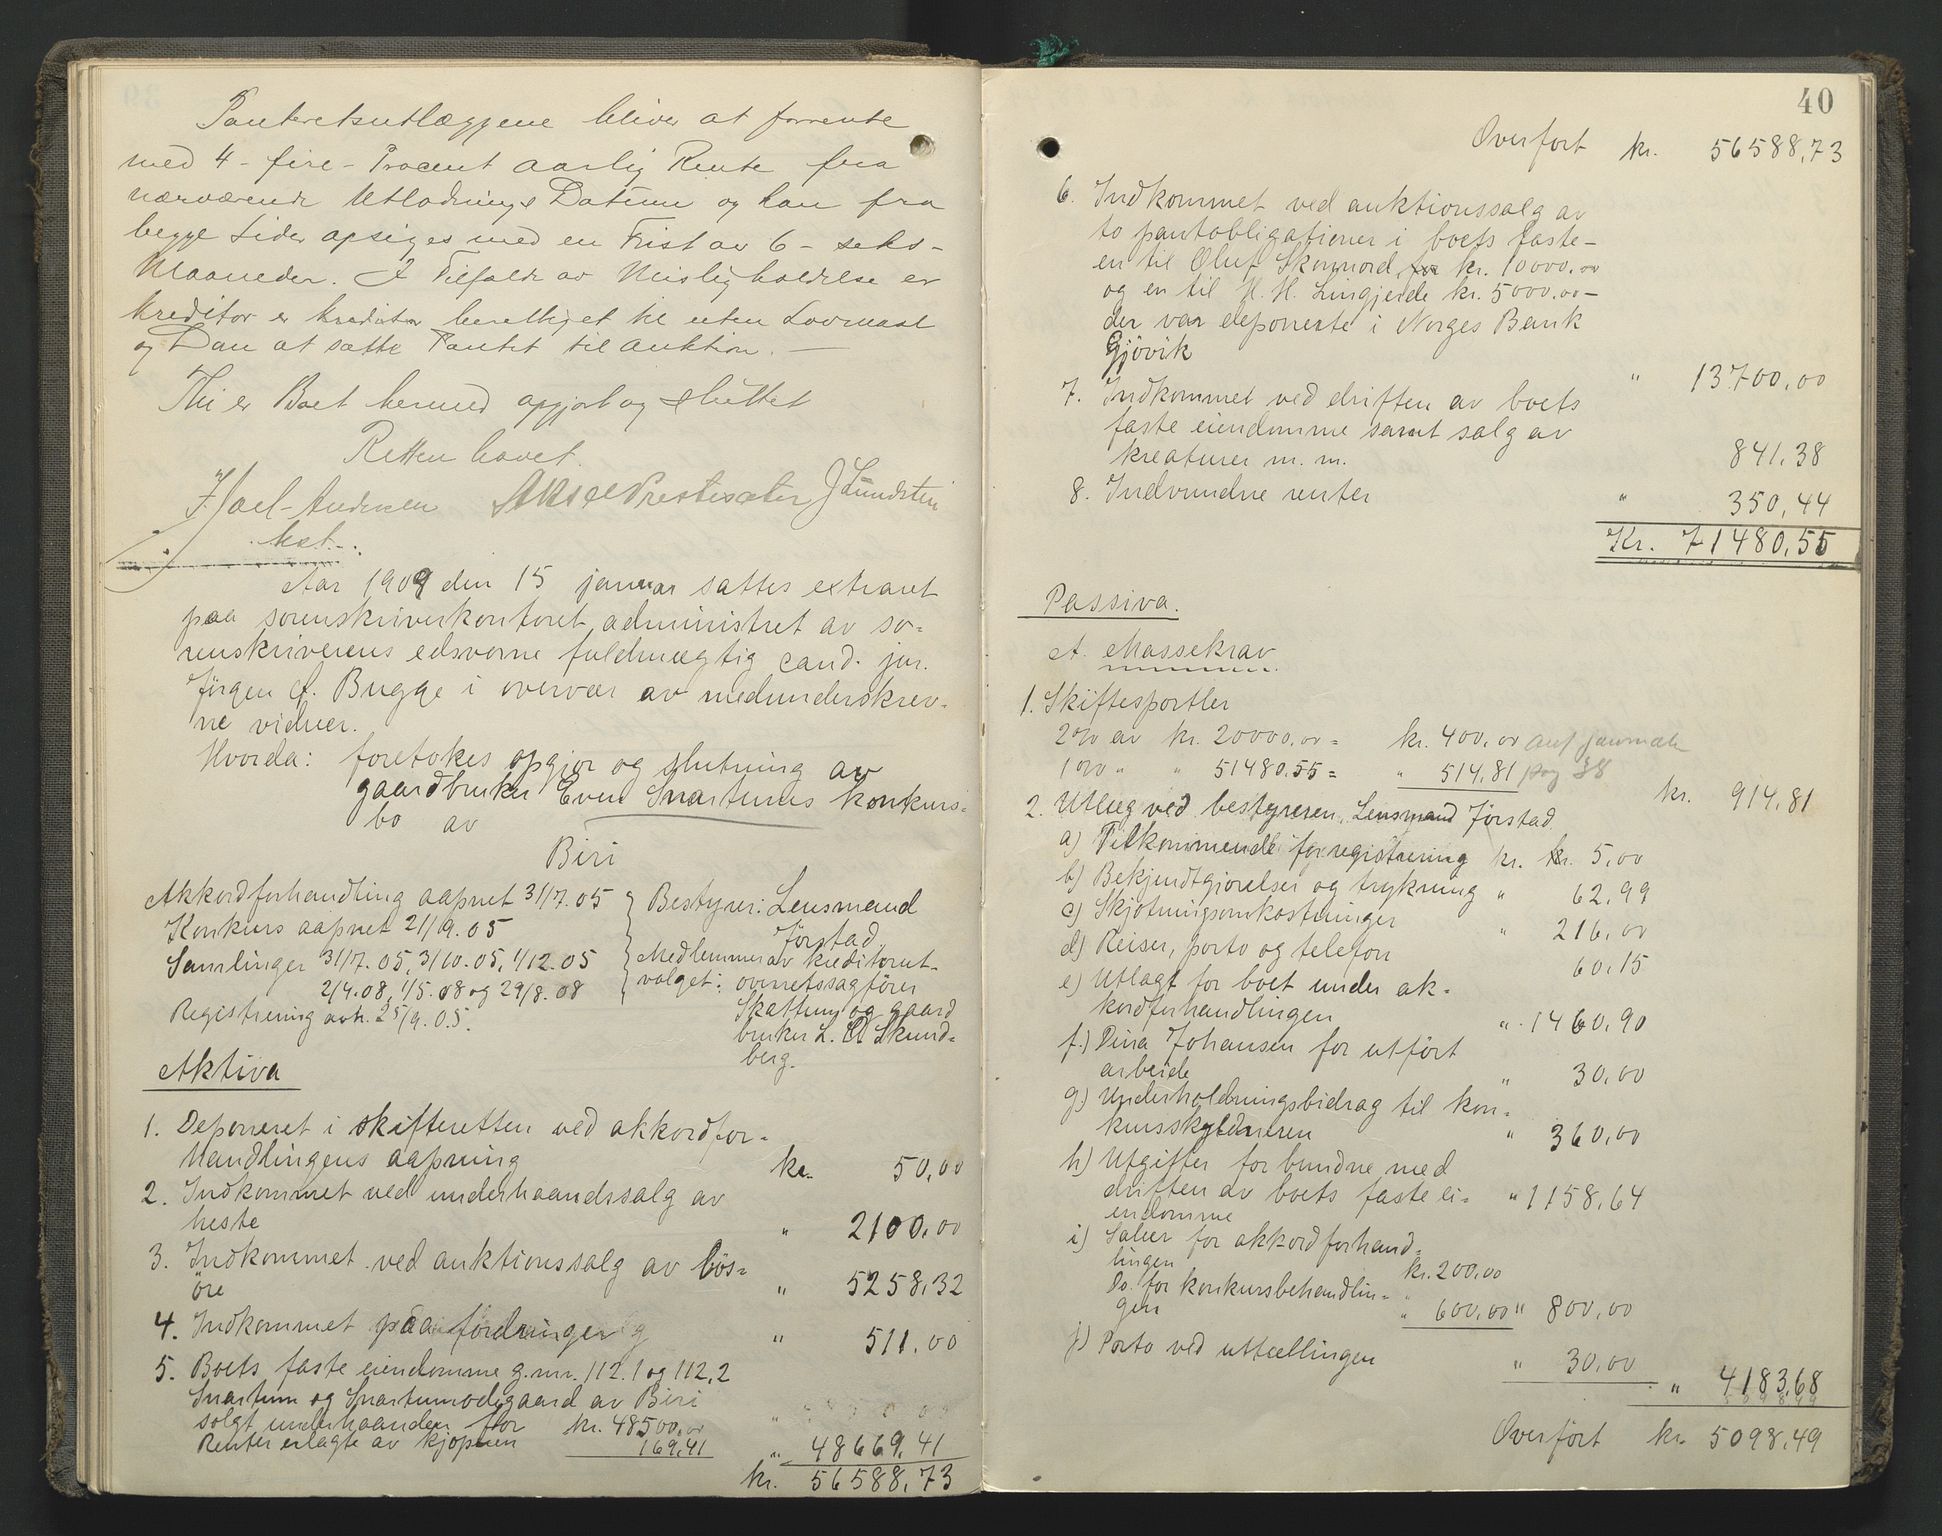 Panteretsutlæggene bliver at forrente
med 4 - fire - Procent aarlig Rente fra
nærværende Utlodnings Datum og kan fra
begge Sider opsiges med en Frist av 6 - seks -
Maaneder. I Tilfælde av Misligholdelse er
Kreditor er Kreditor berettiget til uten Lovmaal
og Dom at sætte Pantet til Auktion. —
Thi er Boet hermed opgjort og sluttet
Retten hævet.
Joael-Andersen Aksel Prestesæter J Lundstein
kst.
Aar 1909 den 15 januar sattes extraret
paa sorenskriverkontoret, administret av so-
renskriverens edsvorne fuldmægtig cand. jur.
Jørgen A. Bugge i overvær av medunderskrev-
ne vidner.
Hvorda: foretokes opgjør og slutning av
gaardbruker Even Snartums konkurs-
bo av
Biri
Akkordforhandling aapnet 31/7.05
Konkurs aapnet 21/9.05
Samlinger 31/7.05, 3/10.05, 1/12.05
2/4.08, 1/5.08 og 29/8.08
Registrering avh. 25/9.05.
Bestyrer: Lensmand
Førstad
Medlemmer av kreditorut-
valget: overretssagfører
Skattum og gaard
bruker L. A Skund-
berg.
Aktiva
1. Deponeret i skifteretten ved akkordfor-
handlingens aapning kr. 50,00
2. Indkommet ved underhaandssalg av
heste " 2100,00
3. Indkommet ved auktionssalg av løs-
øre " 5258,32
4. Indkommet paa fordringer " 511.00
5. Boets faste eiendomme g.nr. 112.1 og 112,2
Snartum og Snartumødegaard av Biri
solgt underhaanden for kr. 48500.00
Renter erlagte av kjøperen 169,41 " 48669,41
kr. 56588,73
40
Overført kr. 56588,73
6. Indkommet ved auktionssalg av
to pantobligationer i boets faste-
en til Oluf Skonnord for kr. 10000.00
og en til H. H. Lingjerde kr. 5000.00 -
der var deponerte i Norges Bank
Gjøvik " 13700,00
7. Indkommet ved driften av boets
faste eiendomme samt salg av
kreaturer m. m. 841,38
8. Indvundne renter " 350,44
Kr. 71480,55
Passiva.
A. Massekrav
1. Skiftesportler
2% av kr. 20000.00 = kr. 400,00 anf journale
1% " " 51480.55 = " 514,81 pag 38
kr. 914,81
2. Utlæg ved bestyreren, Lensmand Førstad
a) Tilkommende for registrering kr. kr. 5,00
b) Bekjendtgjørelser og trykning " 62,99
c) Skjøtningsomkostninger " 216,00
d) Reiser, porto og telefon 60,15
e) Utlagt for boet under ak-
kordforhandlingen " 1460,90
f.) Dina Johansen for utført
arbeide " 30,00
g) Underholdningsbidrag til kon-
kursskyldneren " 360,00
h) Utgifter forbundne med
driften av boets faste ei- " 1158,64
endomme
i) Salær for akkordforhand-
lingen kr. 200,00
Do. for konkursbehandlin-
gen " 600,00 " 800,00
j) Porto ved uttællingen " 30,00
" 4183,68
Overført kr. 5098,49